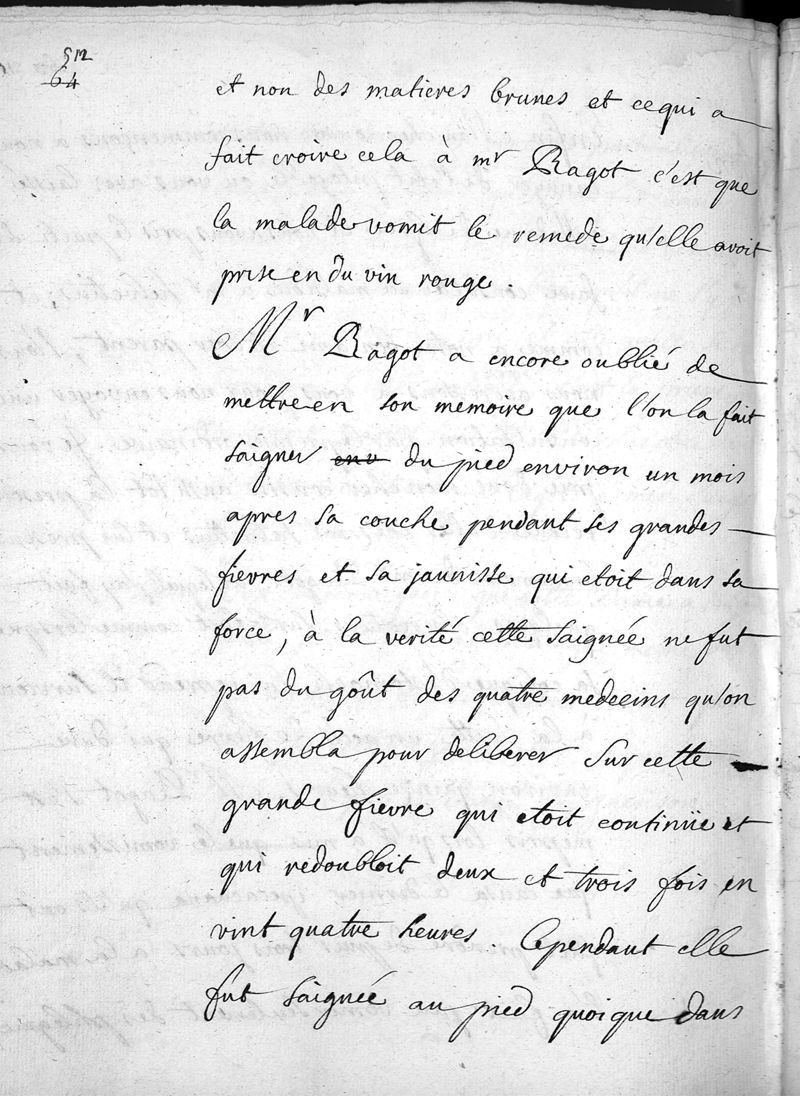 512
64
et non des matieres brunes et cequi a
fait croire cela à mr Ragot c'est que
la malade vomit le remede qu'elle avoit
prise en du vin rouge.
Mr Ragot a encore oublié de
mettre en son memoire que l'on la fait
saigner env du pied environ un mois
apres sa couche pendant ses grandes
fievres et sa jaunisse qui etoit dans sa
force, à la verité cette saignée ne fut
pas du goût des quatre medecins qu'on
assembla pour deliberer sur cette
grande fievre qui etoit continüe et
qui redoubloit deux et trois fois en
vint quatre heures. Cependant elle
fut saignée au pied quoique dans